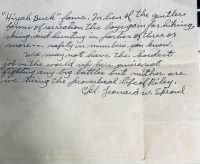 "Hiyah Buck" fame. In lieu of the gentler
forms of recreation the boys go in for hiking,
skiing, and hunting in parties of three or
more --- safety in numbers, you know.
We may not have the hardest
job in the world up here, we're not
fighting any big battles but neither are
we living the proverbial life of Riley.
Cpl Leonard W. Sproul